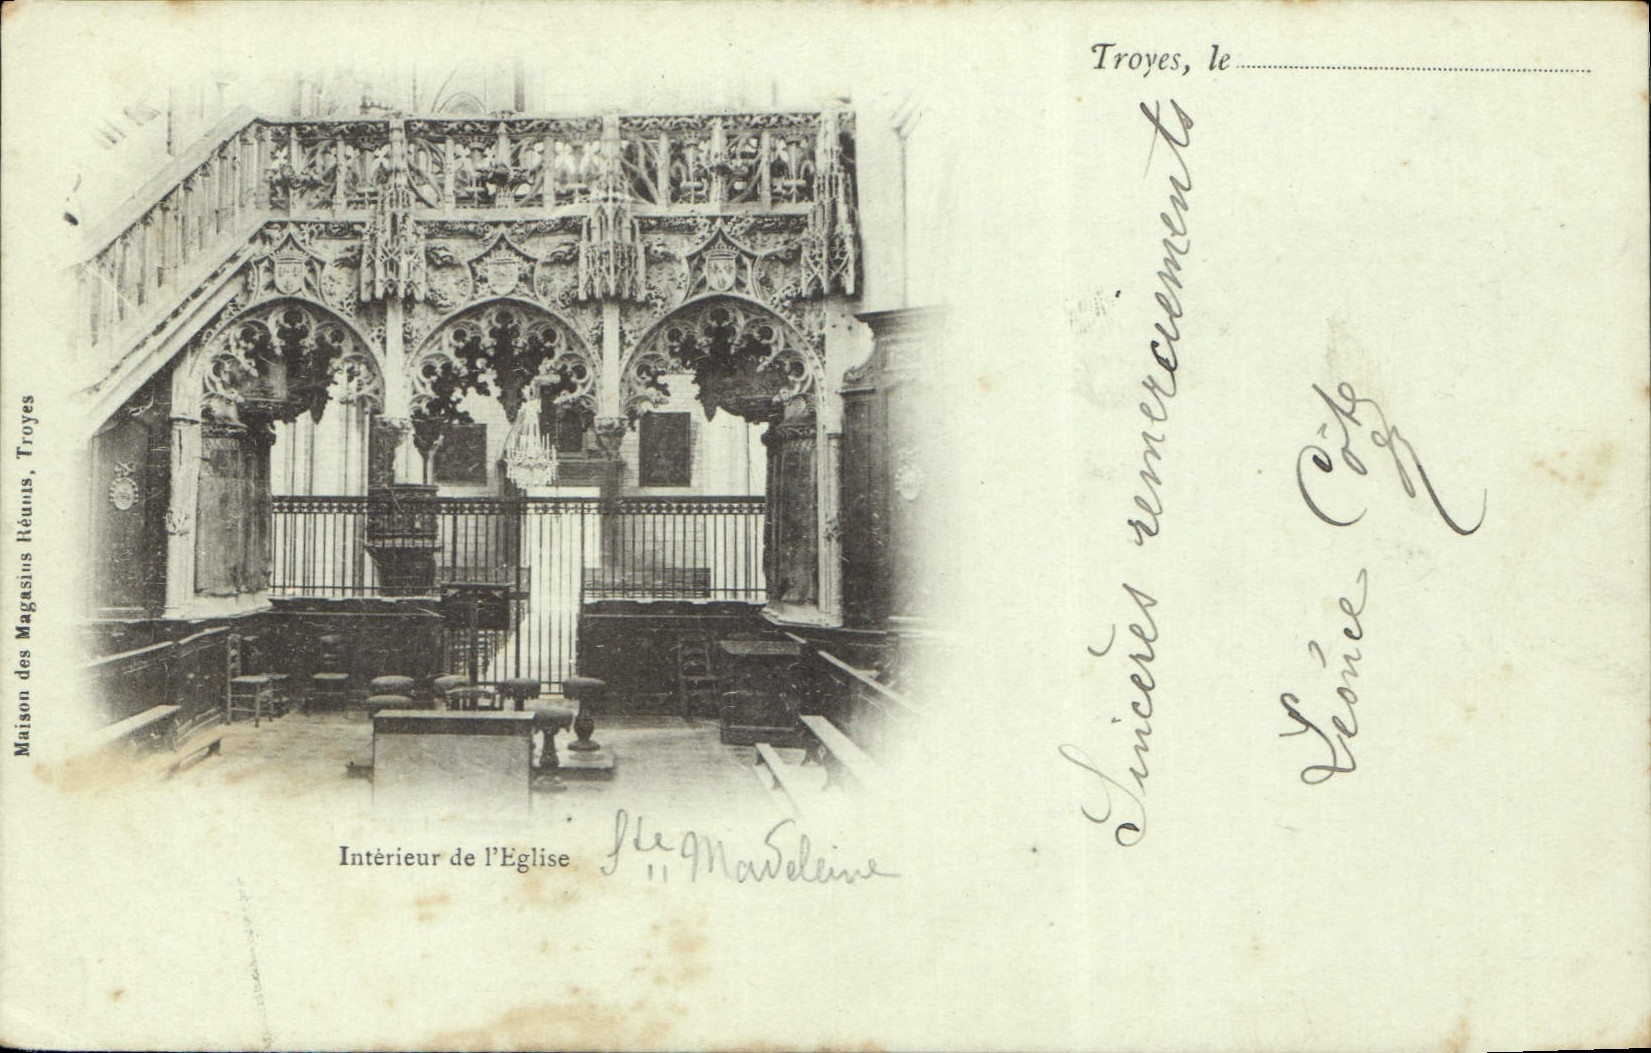 Troyes, le
Maison des Magasins Réunis, Troyes
Intérieur de l'Eglise Ste Madeleine
Sincères remerciements
Léonce Côte